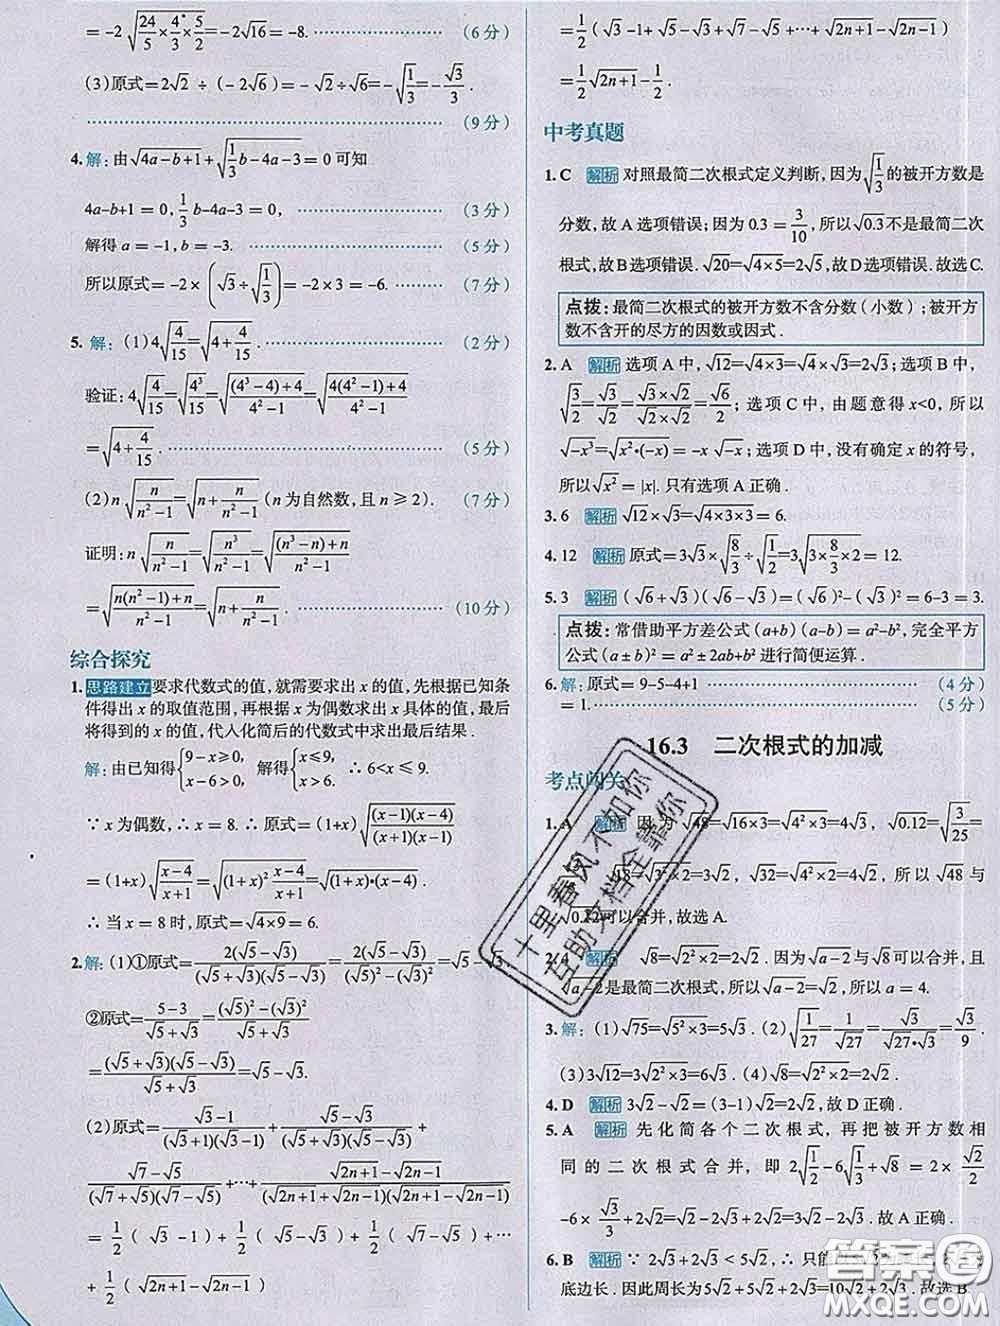 =-2√(24/5×4/3×5/2)=-2√16=-8. ………………(6分)
(3)原式=2√2÷(-2√6)=-√2÷√6=-√(1/3)=-√3/3.
………………(9分)
4.解:由√(4a-b+1)+√(1/3b-4a-3)=0可知
4a-b+1=0,1/3b-4a-3=0, ………………(3分)
解得a=-1,b=-3. ………………(5分)
所以原式=-2×(√3÷√(1/3))=-2×3=-6. ………(7分)
5.解:(1)4√(4/15)=√(4+4/15). ………………(2分)
验证:4√(4/15)=√(4³/15)=√(((4³-4)+4)/(4²-1))=√((4(4²-1)+4)/(4²-1))
=√(4+4/15). ………………(5分)
(2)n√(n/(n²-1))=√(n+n/(n²-1))(n为自然数,且n≥2). …(7分)
证明:n√(n/(n²-1))=√(n³/(n²-1))=√(((n³-n)+n)/(n²-1))
=√((n(n²-1)+n)/(n²-1))=√(n+n/(n²-1)). ………………(10分)
综合探究
1.思路建立 要求代数式的值,就需要求出x的值,先根据已知条
件得出x的取值范围,再根据x为偶数求出x具体的值,最后
将得到的x的值,代入化简后的代数式中求出最后结果.
解:由已知得{9-x≥0, x-6>0, 解得{x≤9, x>6. ∴6<x≤9.
∵x为偶数,∴x=8.∴原式=(1+x)√((x-1)(x-4)/((x+1)(x-1)))
=(1+x)√((x-4)/(x+1))=√((1+x)²(x-4)/(x+1))=√((1+x)·(x-4)).
∴当x=8时,原式=√(4×9)=6.
2.解:(1)①原式=2(√5-√3)/((√5+√3)(√5-√3))=2(√5-√3)/((√5)²-(√3)²)=√5-√3
②原式=(5-3)/(√5+√3)=((√5)²-(√3)²)/(√5+√3)
=(√5+√3)(√5-√3)/(√5+√3)=√5-√3.
(2)原式=(√3-1)/((√3+1)(√3-1))+(√5-√3)/((√5+√3)(√5-√3))+
(√7-√5)/((√7+√5)(√7-√5))+…+(√(2n+1)-√(2n-1))/((√(2n+1)+√(2n-1))(√(2n+1)-√(2n-1)))
=1/2(√3-1)+1/2(√5-√3)+1/2(√7-√5)+…
+1/2(√(2n+1)-√(2n-1))
=1/2(√3-1+√5-√3+√7-√5+…+√(2n+1)-√(2n-1))
=1/2√(2n+1)-1/2.
中考真题
1.C 解析 对照最简二次根式定义判断,因为√(1/3)的被开方数是
分数,故A选项错误;因为0.3=3/10,所以√0.3不是最简二次
根式,故B选项错误.√20=√(4×5)=2√5,故D选项错误.故选C.
点拨:最简二次根式的被开方数不含分数(小数);被开方
数不含开的尽方的因数或因式.
2.A 解析 选项A中,√12=√(4×3)=√4×√3=2√3;选项B中,
√(3/2)=√3/√2=(√3×√2)/(√2×√2)=√6/2;选项C中,由题意得x<0,所以
√(-x³)=√(x²·(-x))=-x√(-x);选项D中,没有确定x的符号,
所以√(x²)=|x|.只有选项A正确.
3.6 解析 √12×√3=√(4×3×3)=6.
4.12 解析 原式=3√3×√(8/3)÷√(1/2)=3√(3×8/3×2)=12.
5.3 解析 (√6+√3)(√6-√3)=(√6)²-(√3)²=6-3=3.
点拨:常借助平方差公式(a+b)(a-b)=a²-b²,完全平方
公式(a±b)²=a²±2ab+b²进行简便运算.
6.解:原式=9-5-4+1 ………………(4分)
=1. ………………(5分)
16.3 二次根式的加减
考点闯关
1.A 解析 因为√48=√(16×3)=√(4²×3)=4√3,√0.12=√(3/25)=
√3,√18=√(3²×2)=3√2,√32=√(4²×2)=4√2,所以√48与
√0.12可以合并,故选A.
2.4 解析 √8=√(2²×2)=2√2.因为√(a-2)与√8可以合并,且
√(a-2)是最简二次根式,所以√(a-2)=√2,所以a=4.
3.解:(1)√75=√(5²×3)=5√3.(2)√(1/27)=1/√27=√3/(√27·√3)=√3/9.
(3)3√12=3√(2²×3)=6√3.(4)√8=√(2²×2)=2√2.
4.D 解析 3√2-√2=(3-1)√2=2√2,故D正确.
5.A 解析 先化简各个二次根式,再把被开方数相
同的二次根式合并,即2√(1/2)-6√(1/3)+√8=2×√2/2
-6×√3/3+2√2=√2-2√3+2√2=3√2-2√3.故A正确.
6.B 解析 ∵2√3+2√3<5√2,∴只能
底边长.因此周长为5√2+5√2+2√3=10√2+2√3,故选B.
十里春风不如你
互助文档全靠你
答案圈
MXQE.COM